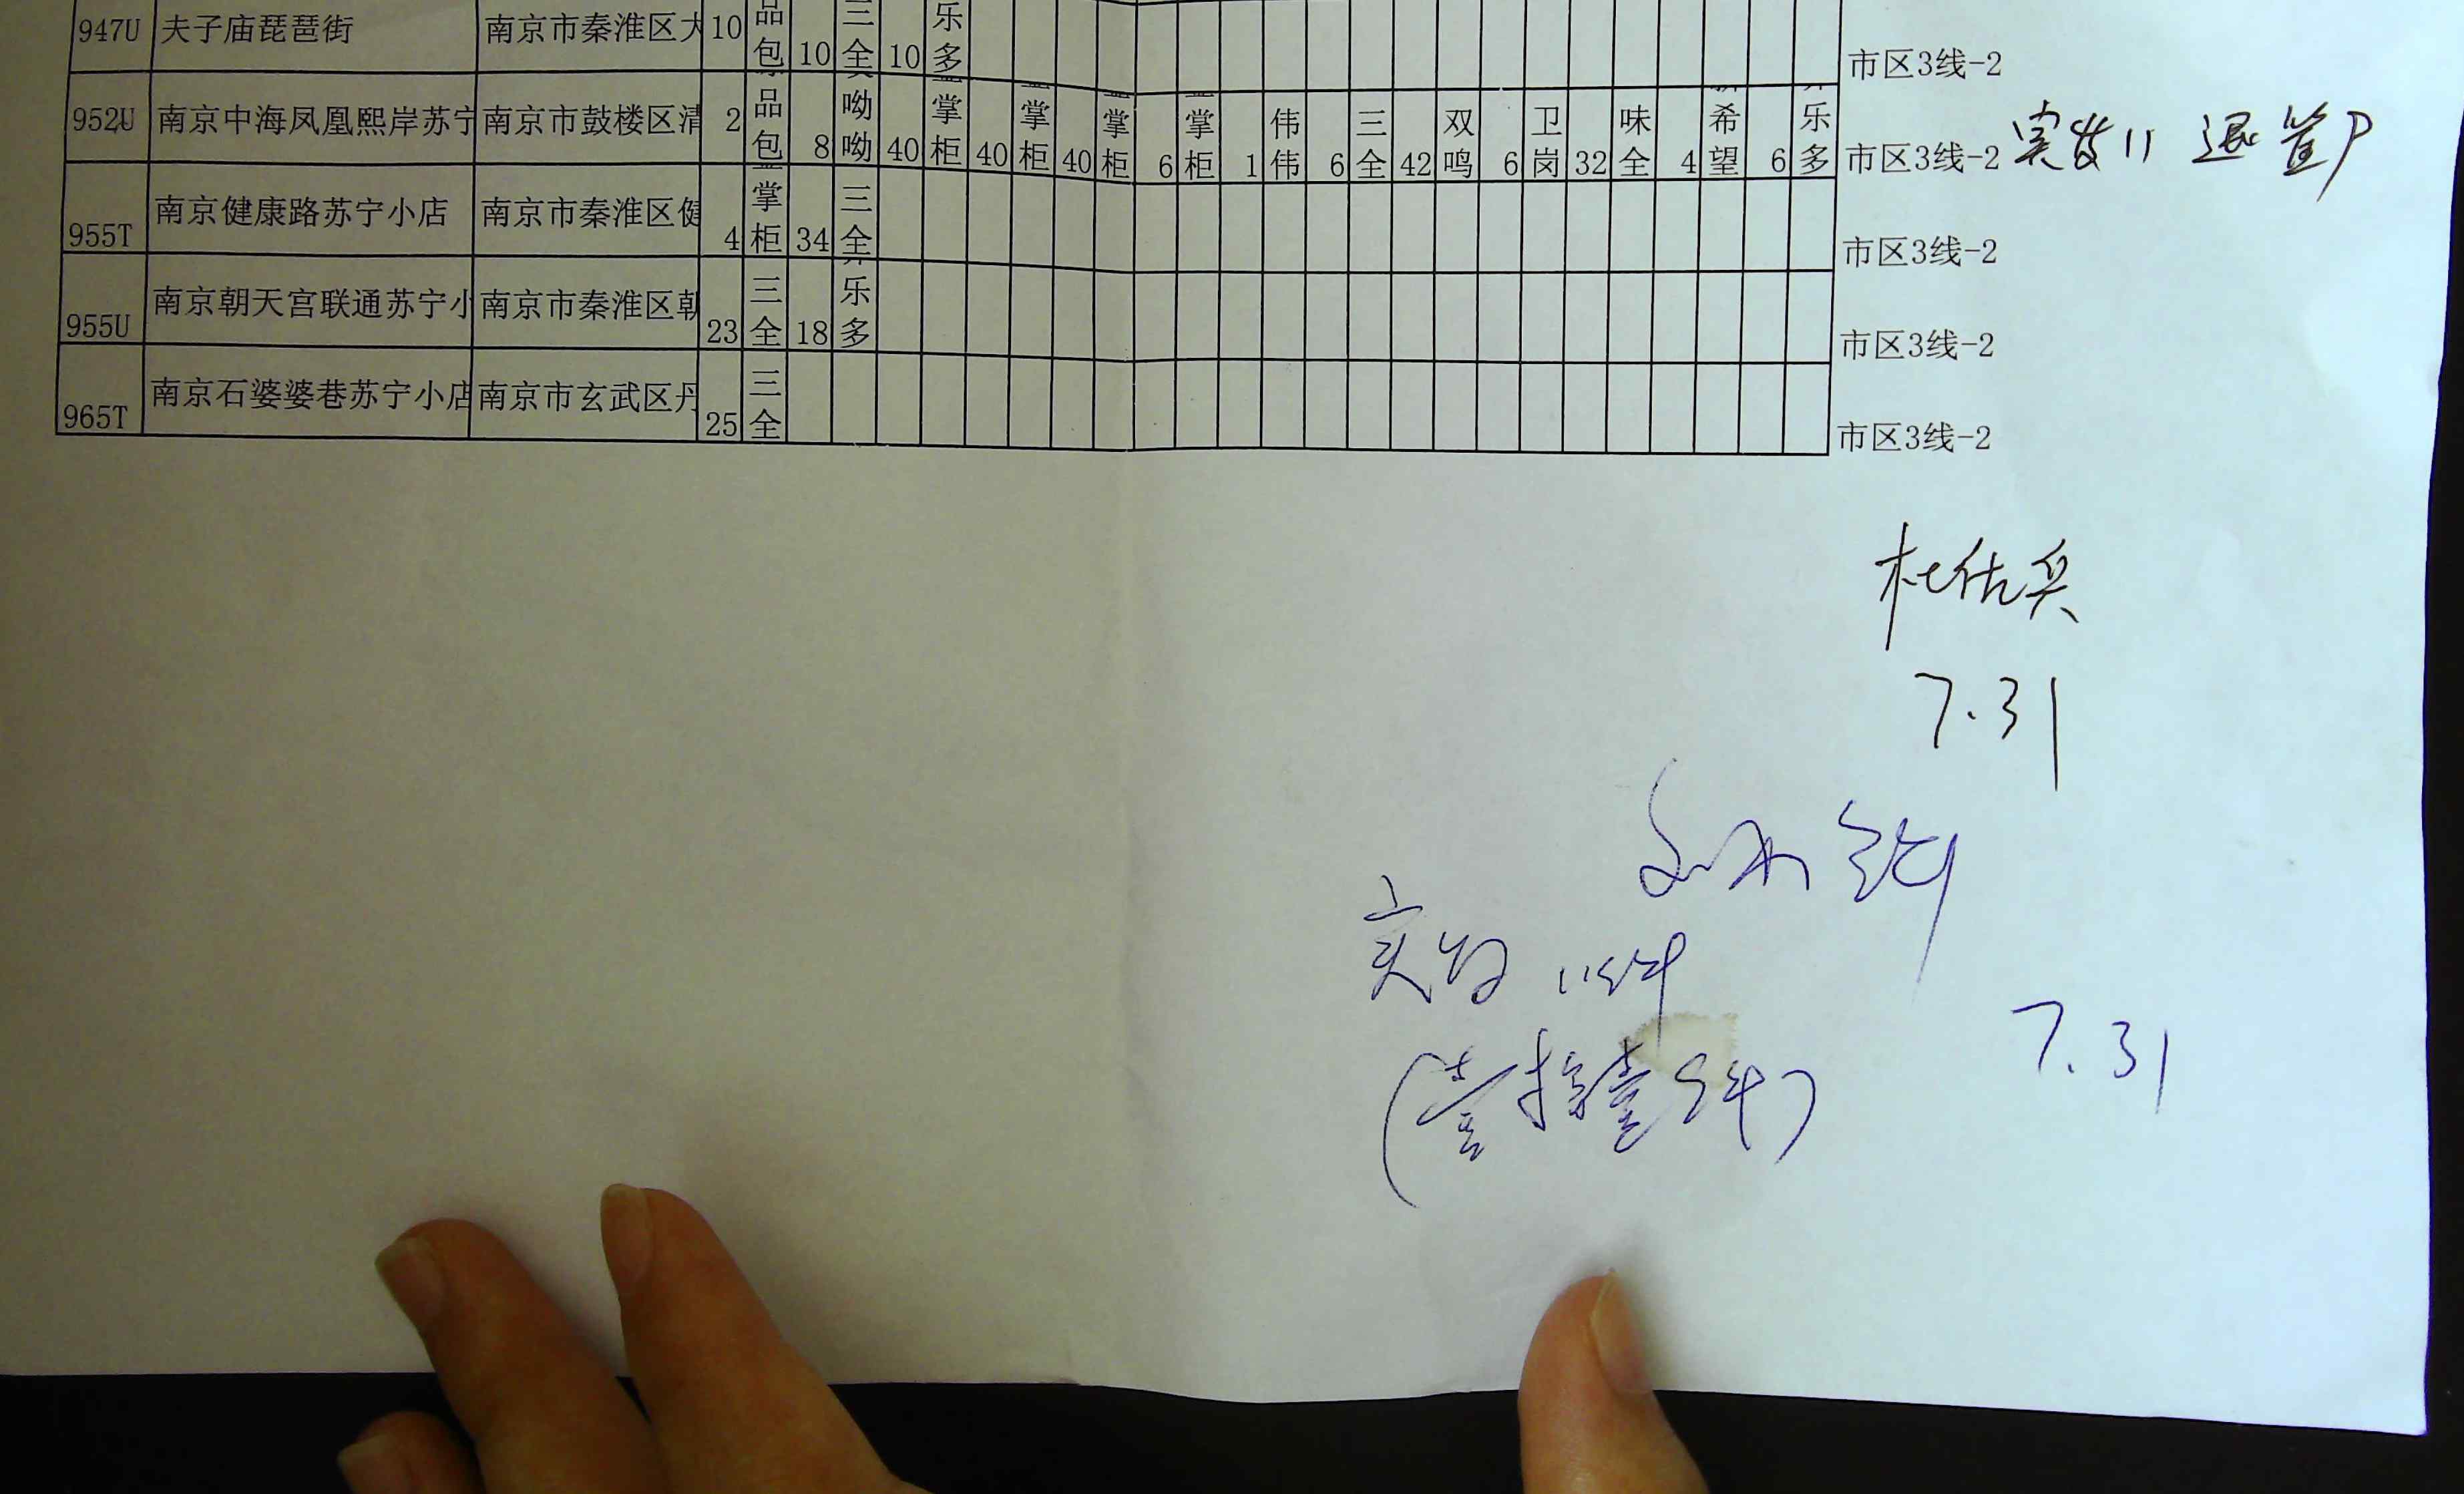 947U 夫子庙琵琶街 南京市秦淮区大 10 品包 10 三全 10 乐多 市区3线-2
952U 南京中海凤凰熙岸苏宁 南京市鼓楼区清 2 品包 8 呦呦 40 掌柜 40 掌柜 40 掌柜 6 掌柜 1 伟伟 6 三全 42 双鸣 6 卫岗 32 味全 4 希望 6 乐多 市区3线-2 实发11
955T 南京健康路苏宁小店 南京市秦淮区健 4 掌柜 34 三全 市区3线-2
955U 南京朝天宫联通苏宁小 南京市秦淮区朝 23 三全 18 乐多 市区3线-2
965T 南京石婆婆巷苏宁小店 南京市玄武区丹 25 三全 市区3线-2
7.31
7.31